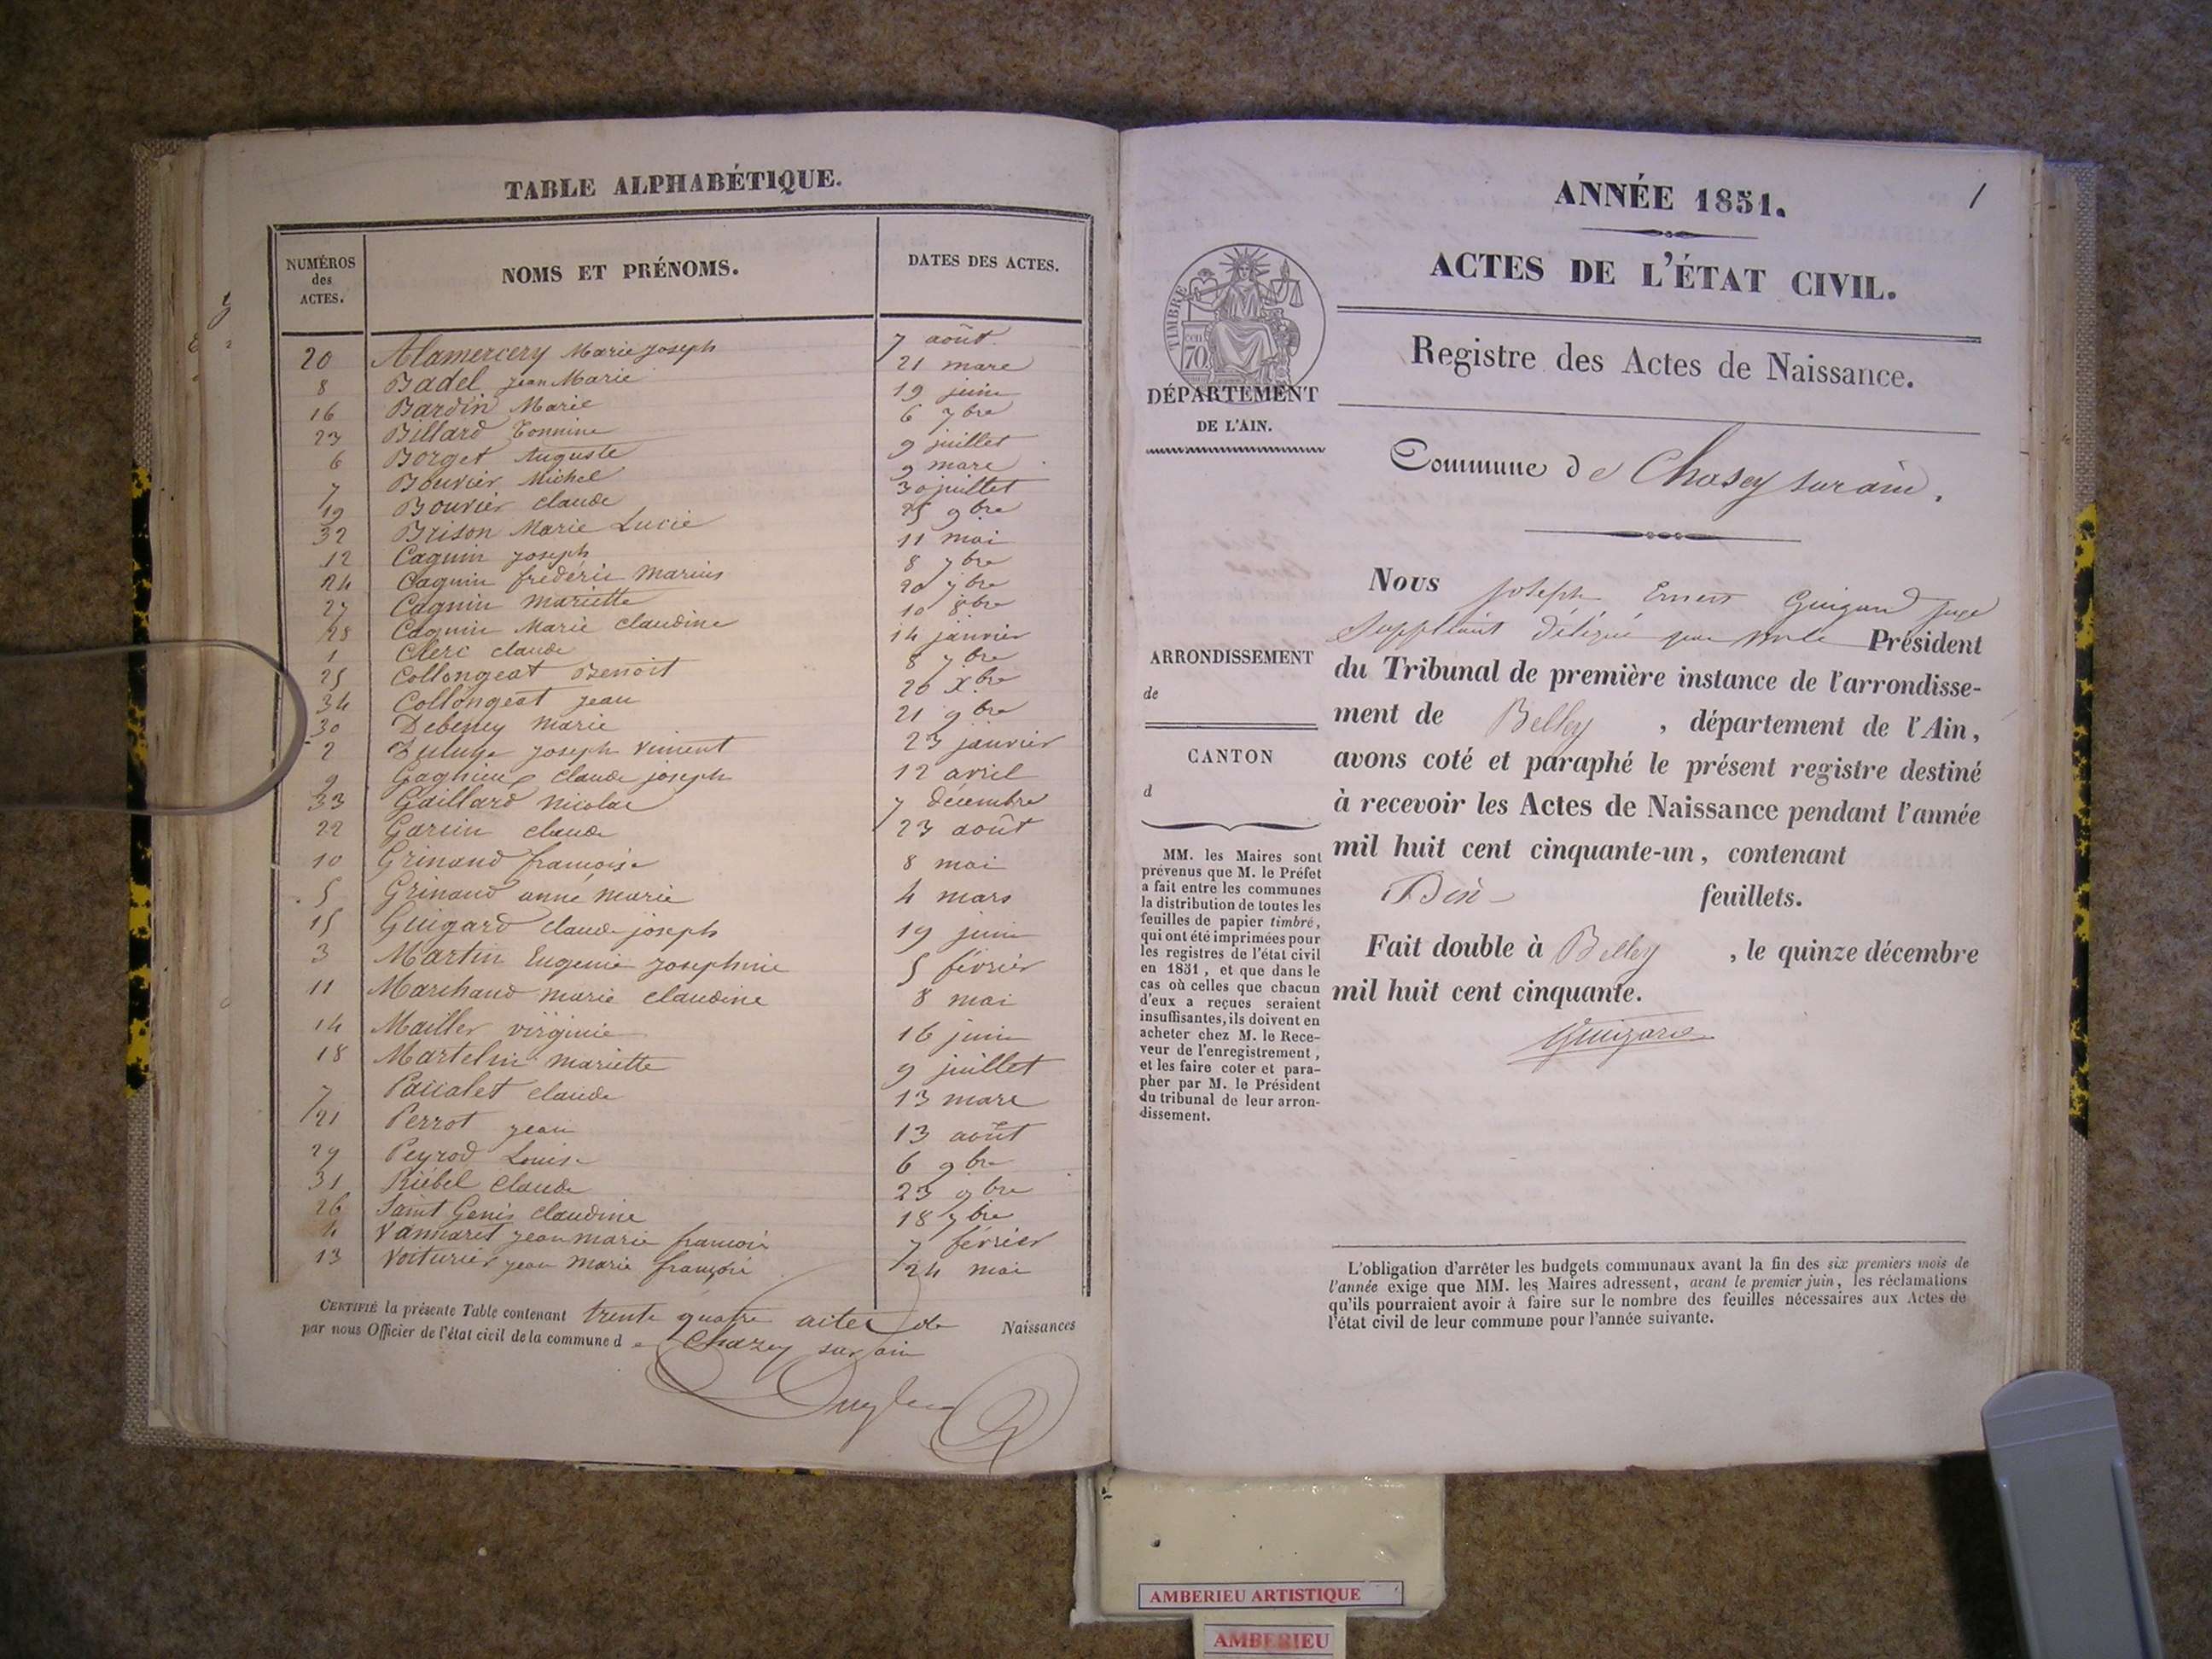 TABLE ALPHABÉTIQUE.
NUMÉROS des ACTES.
NOMS ET PRÉNOMS.
DATES DES ACTES.
20 Alamercery Marie joseph 7 août
8 Badel jean Marie 21 mars
16 Bardin Marie 19 juin
23 Billard 6 7bre
6 Borget Auguste 9
Bouvier Michel 9 juillet
19 Bouvier claude 30 juillet
32 Brison Marie Lucie 25 9bre
12 Cagnin joseph 11 mai
24 Cagnin frédéric Marius 8 7bre
27 Cagnin Mariette 20 7bre
28 Cagnin Marie claudine 10 8bre
1 Clerc claude 14 janvier
25 Collongeat Benoit 8 7bre
34 Collongeat jean 20 Xbre
30 Debeney Marie 21 9bre
2 joseph vincent 23 janvier
9 claude joseph 12 avril
33 Gaillard nicolas 7 décembre
22 Garcin claude 23 août
10 Grinand françoise 8 mai
5 Grinand anne marie 4 mars
15 Guigard claude joseph 19 juin
3 Martin Eugenie josephine 5 février
11 Marchand marie claudine 8 mai
14 Mailler virginie 16 juin
18 Martelin mariette 9 juillet
7 Paccalet claude 13 mars
21 Perrot jean 13 août
29 Peyrod Louise 6 9bre
31 Riébel Claude 23 9bre
26 Saint Genis claudine 18 7bre
4 Vannaret jean marie francois 7 février
13 Voiturier jean Marie françois 24 mai
CERTIFIÉ la présente Table contenant trente quatre actes de Naissances
par nous Officier de l'état civil de la commune d e Chazey sur ain
1
ANNÉE 1851.
ACTES DE L'ÉTAT CIVIL.
TIMBRE
70
Registre des Actes de Naissance.
DÉPARTEMENT
DE L'AIN.
Commune de Chasey sur ain.
Nous joseph Ernest Guigard juge
Suppléant délégué par Mr le Président
ARRONDISSEMENT
de
CANTON
d
du Tribunal de première instance de l'arrondisse-
ment de Belley, département de l'Ain,
avons coté et paraphé le présent registre destiné
à recevoir les Actes de Naissance pendant l'année
mil huit cent cinquante-un, contenant
Dix feuillets.
Fait double à Belley, le quinze décembre
mil huit cent cinquante.
Guigard
MM. les Maires sont
prévenus que M. le Préfet
a fait entre les communes
la distribution de toutes les
feuilles de papier timbré,
qui ont été imprimées pour
les registres de l'état civil
en 1851, et que dans le
cas où celles que chacun
d'eux a reçues seraient
insuffisantes, ils doivent en
acheter chez M. le Rece-
veur de l'enregistrement,
et les faire coter et para-
pher par M. le Président
du tribunal de leur arron-
dissement.
L'obligation d'arrêter les budgets communaux avant la fin des six premiers mois de
l'année exige que MM. les Maires adressent, avant le premier juin, les réclamations
qu'ils pourraient avoir à faire sur le nombre des feuilles nécessaires aux Actes de
l'état civil de leur commune pour l'année suivante.
AMBERIEU ARTISTIQUE
AMBERIEU